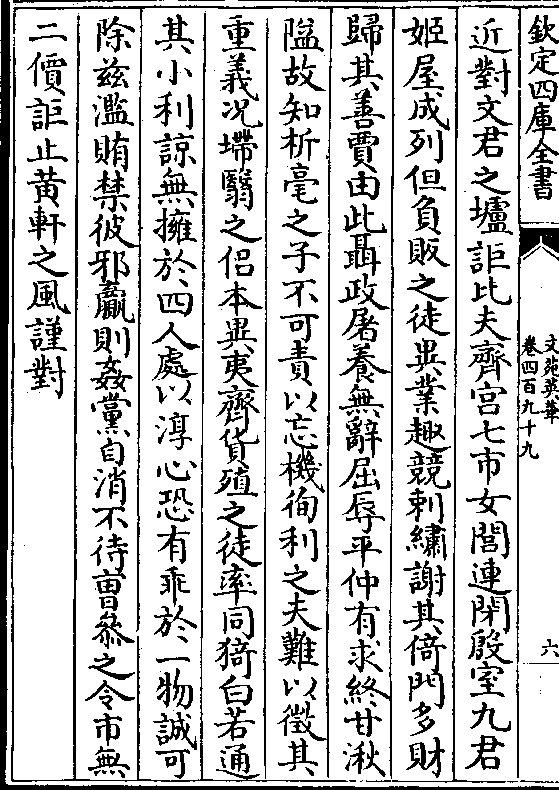 欽定四庫全書
文苑英華
卷四百九十九
六
近對文君之壚詎比夫齊宫七市女閭連閈殷室九君
姬屋成列但負販之徒異業趣競刺繡謝其倚門多財
歸其善賈由此聶政屠養無辭屈辱平仲有求終甘湫
隘故知析毫之子不可責以忘機徇利之夫難以徵其
重義况墆鬄之侶本異夷齊貨殖之徒率同猗白若通
其小利諒無擁於四人處以淳心恐有乖於一物誠可
除兹濫賄禁彼邪贏則姦黨自消不待曹叅之令市無
二價詎止黄軒之風謹對